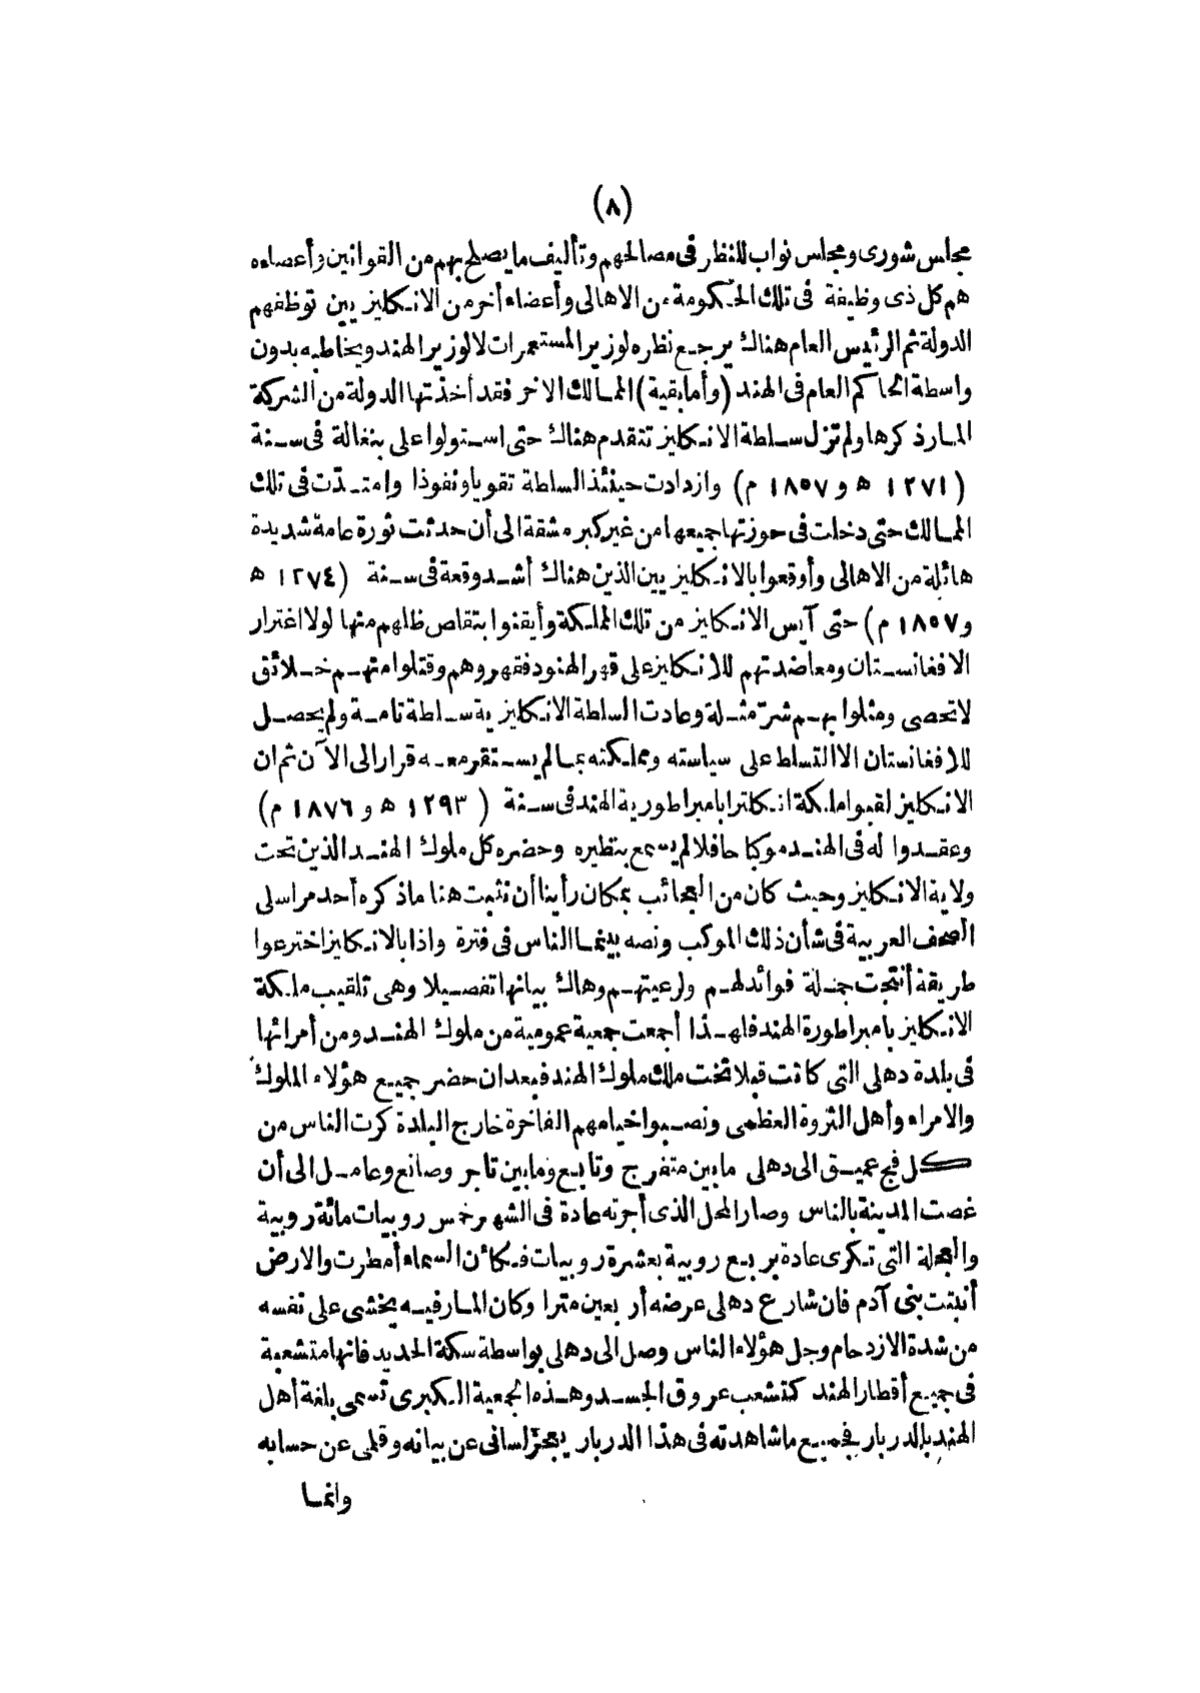 (٨)
مجلس شورى ومجلس نواب للنظر فى مصالحهم وتأليف ما يصلح بهم من القوانين وأعضاءه
هم كل ذى وظيفة فى تلك الحكومة من الاهالى وأعضاء أخر من الانكليزيين توظفهم
الدولة ثم الرئيس العام هناك يرجع نظره لوزير المستعمرات لا لوزير الهند ويخاطبه بدون
واسطة الحاكم العام فى الهند (وأما بقية) الممالك الاخر فقد أخذتها الدولة من الشركة
المار ذكرها ولم تزل سلطة الانكليز تتقدم هناك حتى استولوا على بنغالة فى سنة
(١٢٧١ ه و ١٨٥٧ م) وازدادت حينئذ السلطة تقويا ونفوذا وامتدّت فى تلك
الممالك حتى دخلت فى حوزتها جميعها من غير كبر مشقة الى أن حدثت ثورة عامة شديدة
هائلة من الاهالى وأوقعوا بالانكليزيين الذين هناك أشد وقعة فى سنة (١٢٧٤ ه
و ١٨٥٧ م) حتى آيس الانكليز من تلك المملكة وأيقنوا بتقاص ظلهم منها لولا اغترار
الافغانستان ومعاضدتهم للانكليز على قهر الهنود فقهروهم وقتلوا منهم خلائق
لا تحصى ومثلوا بهم شرّ مثلة وعادت السلطة الانكليزية سلطة تامة ولم يحصل
للافغانستان الا التسلط على سياسته ومملكته بما لم يستقر معه قرار الى الآن ثم ان
الانكليز لقبوا ملكة انكلترا بامبراطورية الهند فى سنة (١٢٩٣ ه و ١٨٧٦ م)
وعقدوا له فى الهند موكبا حافلا لم يسمع بنظيره وحضره كل ملوك الهند الذين تحت
ولاية الانكليز وحيث كان من العجائب بمكان رأينا أن نثبت هنا ما ذكره أحد مراسلى
الصحف العربية فى شأن ذلك الموكب ونصه بينما الناس فى فترة واذا بالانكليز اخترعوا
طريقة أنتجت جملة فوائد لهم ولرعيتهم وهاك بيانها تفصيلا وهى تلقيب ملكة
الانكليز بامبراطورة الهند فلهذا أجمعت جمعية عمومية من ملوك الهند ومن أمرائها
فى بلدة دهلى التى كانت قبلا تخت ملك ملوك الهند فبعد ان حضر جميع هؤلاء الملوك
والامراء وأهل الثروة العظمى ونصبوا خيامهم الفاخرة خارج البلدة كرت الناس من
كل فج عميق الى دهلى ما بين متفرج وتابع وما بين تاجر وصانع وعامل الى أن
غصت المدينة بالناس وصار المحل الذى أجرته عادة فى الشهر خمس روبيات مائة روبية
والعجلة التى تكرى عادة بربع روبية بعشرة روبيات فكأن السماء أمطرت والارض
أنبتت بنى آدم فان شارع دهلى عرضه أربعين مترا وكان المار فيه يخشى على نفسه
من شدة الازدحام وجل هؤلاء الناس وصل الى دهلى بواسطة سكة الحديد فانها متشعبة
فى جميع أقطار الهند كتشعب عروق الجسد وهذه الجمعية الكبرى تسمى بلغة أهل
الهند بالدربار فجميع ما شاهدته فى هذا الدربار يعجز لسانى عن بيانه وقلمى عن حسابه
وانما